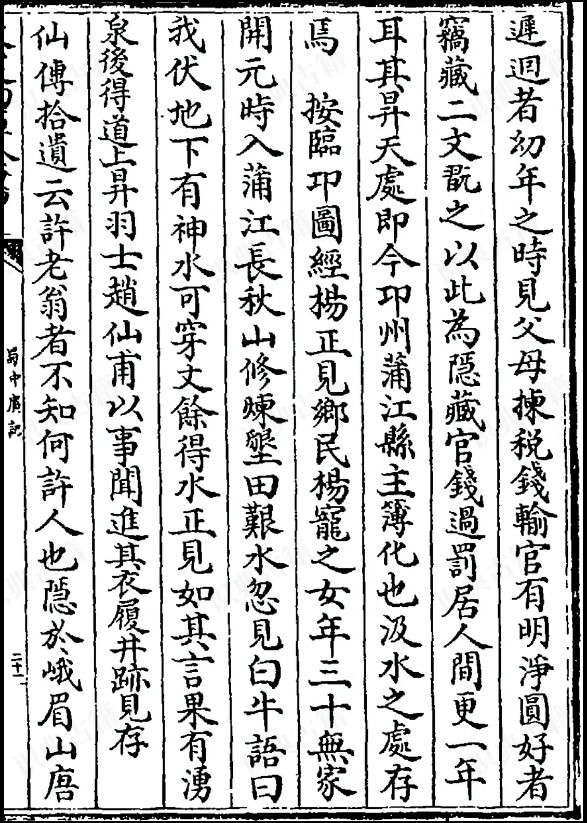 遲迴者幼年之時見父母揀税錢輸官有明淨圓好者
竊藏二文翫之以此為隱藏官錢過罰居人間更一年
耳其昇天處即今邛州蒲江縣主簿化也汲水之處存
焉　按臨邛圖經楊正見鄉民楊寵之女年三十無家
開元時入蒲江長秋山修煉墾田艱水忽見白牛語曰
我伏地下有神水可穿丈餘得水正見如其言果有湧
泉後得道上昇羽士趙仙甫以事聞進其衣履井跡見存
仙傳拾遺云許老翁者不知何許人也隱於峨眉山唐
蜀中廣記
二十二